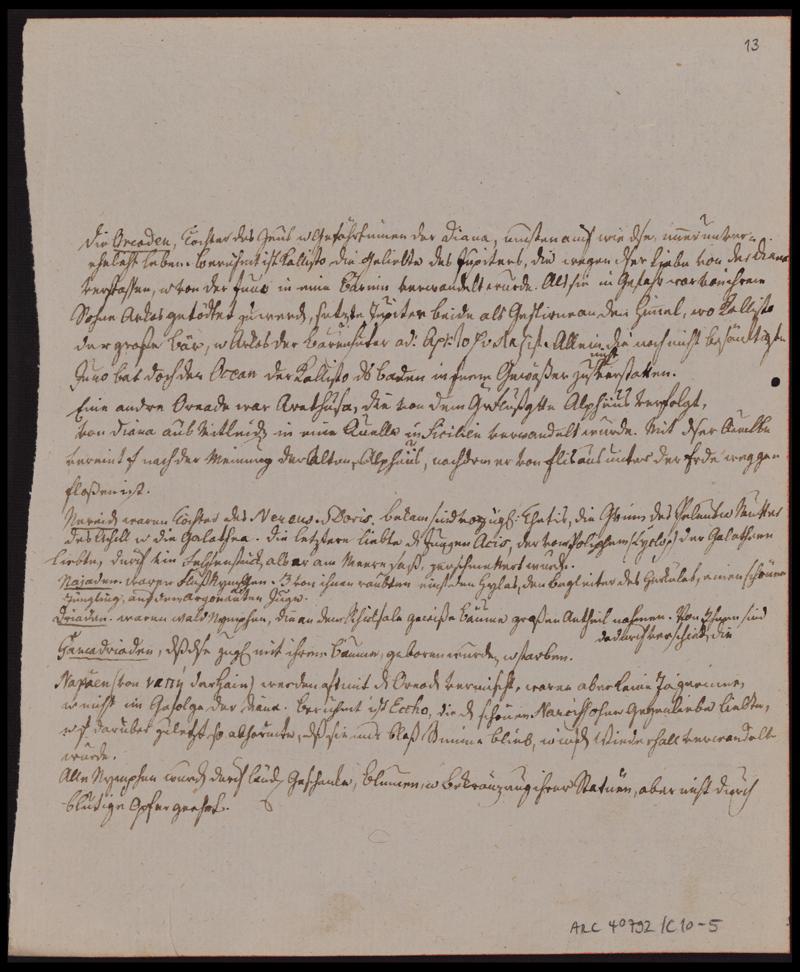 13
Die Oreaden, Töchter des Zeus u Gefährtinnen der Diana, musten auf wie dse, immer unver-
ehelicht leben. Berühmt ist Kallisto die Geliebte des Jupiters, die wegen dser Liebe von der Diana
verstossen, u von der Juno in eine Bärinn verwandelt wurde. Als sie in Gefahr war von ihrem
Sohne Arkas getödtet zu werd, setzte Jupiter beide als Gestirne an den Himmel, wo Kallisto
der große Bär, u Arkas der Bärenhüter ad: ist. Allein die noch nicht besänftigte
Juno bat doch den Ocean der Kallisto ds baden in seinem Gewäßer nicht zu verstatten.
Eine andre Oreade war Arethusa, die von dem Flußgotte Alpheus verfolgt,
von Diana aus Mitleid in eine Quelle in Sicilien verwandelt wurde. Mit dser Quelle
vereint s nach der Meinung der Alten, Alpheus, nachdem er von Elis aus unter der Erde weggе-
floßen ist.
Nereid waren Töchter des Nereus u. Doris. bekam sind vorzügl: Thetis, die Gem des Peleus u Mutter
des Achill u die Galathea. die letztere liebte d jungen Acis, der vom Poliphem (Cyclop) der Galatheen
liebte, durch ein Felsenstück, als er am Meere saß, zerschmettert wurde.
Najaden. waren Flußnymphen. 3 von ihnen raubten einst den Hylas, den Begleiter des Herkules, einen schönen
Jüngling, auf dem Argonauten Zuge.
Driaden. waren Waldnymphen, die an dem Schicksale gewisse Bäume großen Antheil nahmen. Von ihnen sind
dadurch verschied, die
Hamadriaden, dß dse zugl mit ihrem Baume, geboren wurde, u starben.
Napäen (von ναπη der Hain) werden oft mit d Oread vermischt, waren aber keine Jägerinnen,
u nicht im Gefolge der Diana. Berühmt ist Eccho, die d schönen Narciss ohne Gegenliebe liebte,
u s darüber zuletzt so abhärmte, dß sie nur bloß Stimme blieb, u in d Wiederhall verwandelt
wurde.
Alle Nymphen wurd durch länd. Geschenke, Blumen, u Bekränzung ihrer Statuen, aber nicht durch
blutige Opfer geehrt.
ARC 40792/C10-5